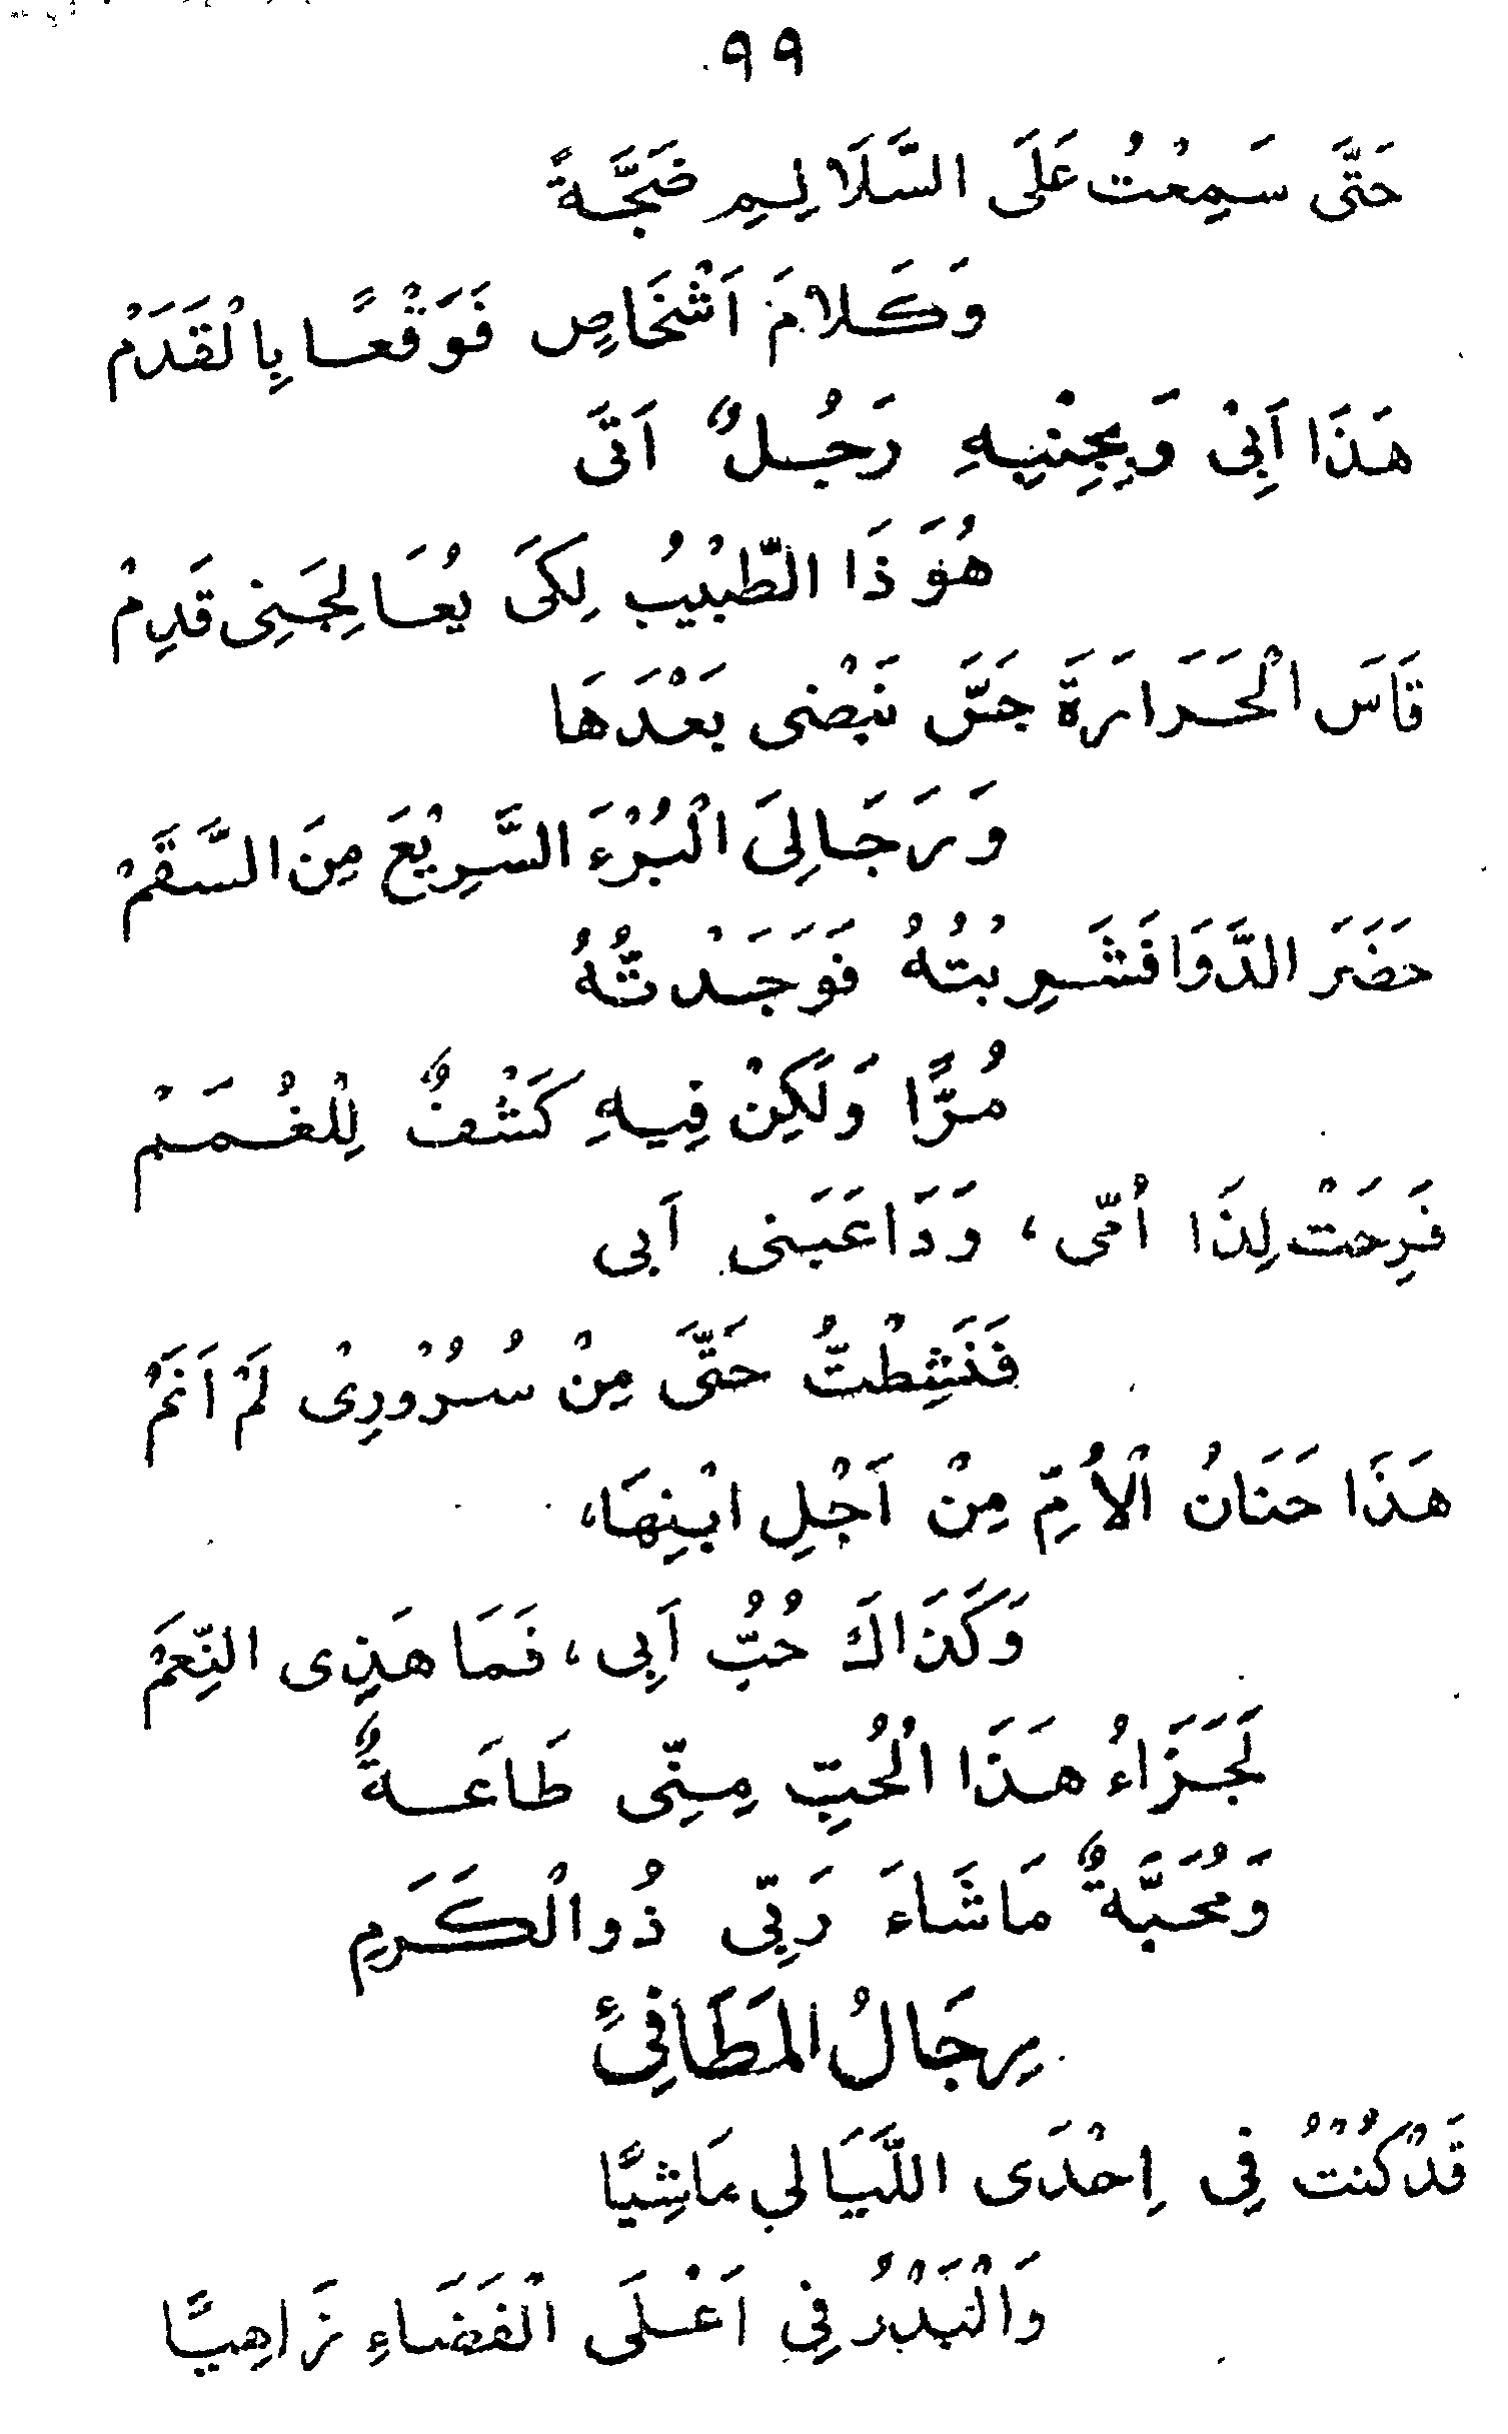 ٩٩
حَتَّى سَمِعْتُ عَلَى السَّلَالِيمِ ضَجَّةً
وَكَلَامَ اَشْخَاصٍ فَوَقْعًا بِالْقَدَمْ
هَذَا اَبِىْ وَبِجِنْبِهِ رَجُلٌ اَتَى
هُوَ ذَا الطَّبْيبُ لِكَى يُعَالِجَنِى قَدِمْ
قَاسَ الْحَرَارَةَ جَسَّ نَبْضى بَعْدَهَا
وَرَجَا لِىَ الْبُرْءَ السَّرِيْعَ مِنَ السَّقَمْ
حَضَرَ الدَّوَا فَشَرِبْتُهُ فَوَجَدْتُّهُ
مُرًّا وَلَكِنْ فِيهِ كَشْفٌ لِلْغُمَمْ
فَرِحَتْ لِذَا اُمّى، وَدَاعَبَنى اَبى
فَنَشِطْتُّ حَتَّى مِنْ سُرُوْرِىْ لَمْ اَنَمْ
هَذَا حَنَانُ الْاُمِّ مِنْ اَجْلِ ابْنِهَا،
وَكَذَاكَ حُبُّ اَبِى، فَمَا هَذِى النِّعَمْ
لَجَزَاءُ هَذَا الْحُبِّ مِنِّى طَاعَةٌ
وَمُحَبَّةٌ مَاشَاءَ رَبِّى ذُوالْكَرَمِ
رِجَالُ المَطَافِئِ
قَدْكُنْتُ فِى اِحْدَى اللَّيَالى مَاشِيًا
وَالْبَدْرُ فِى اَعْلَى الْفَضَاءِ زَاهِيًا